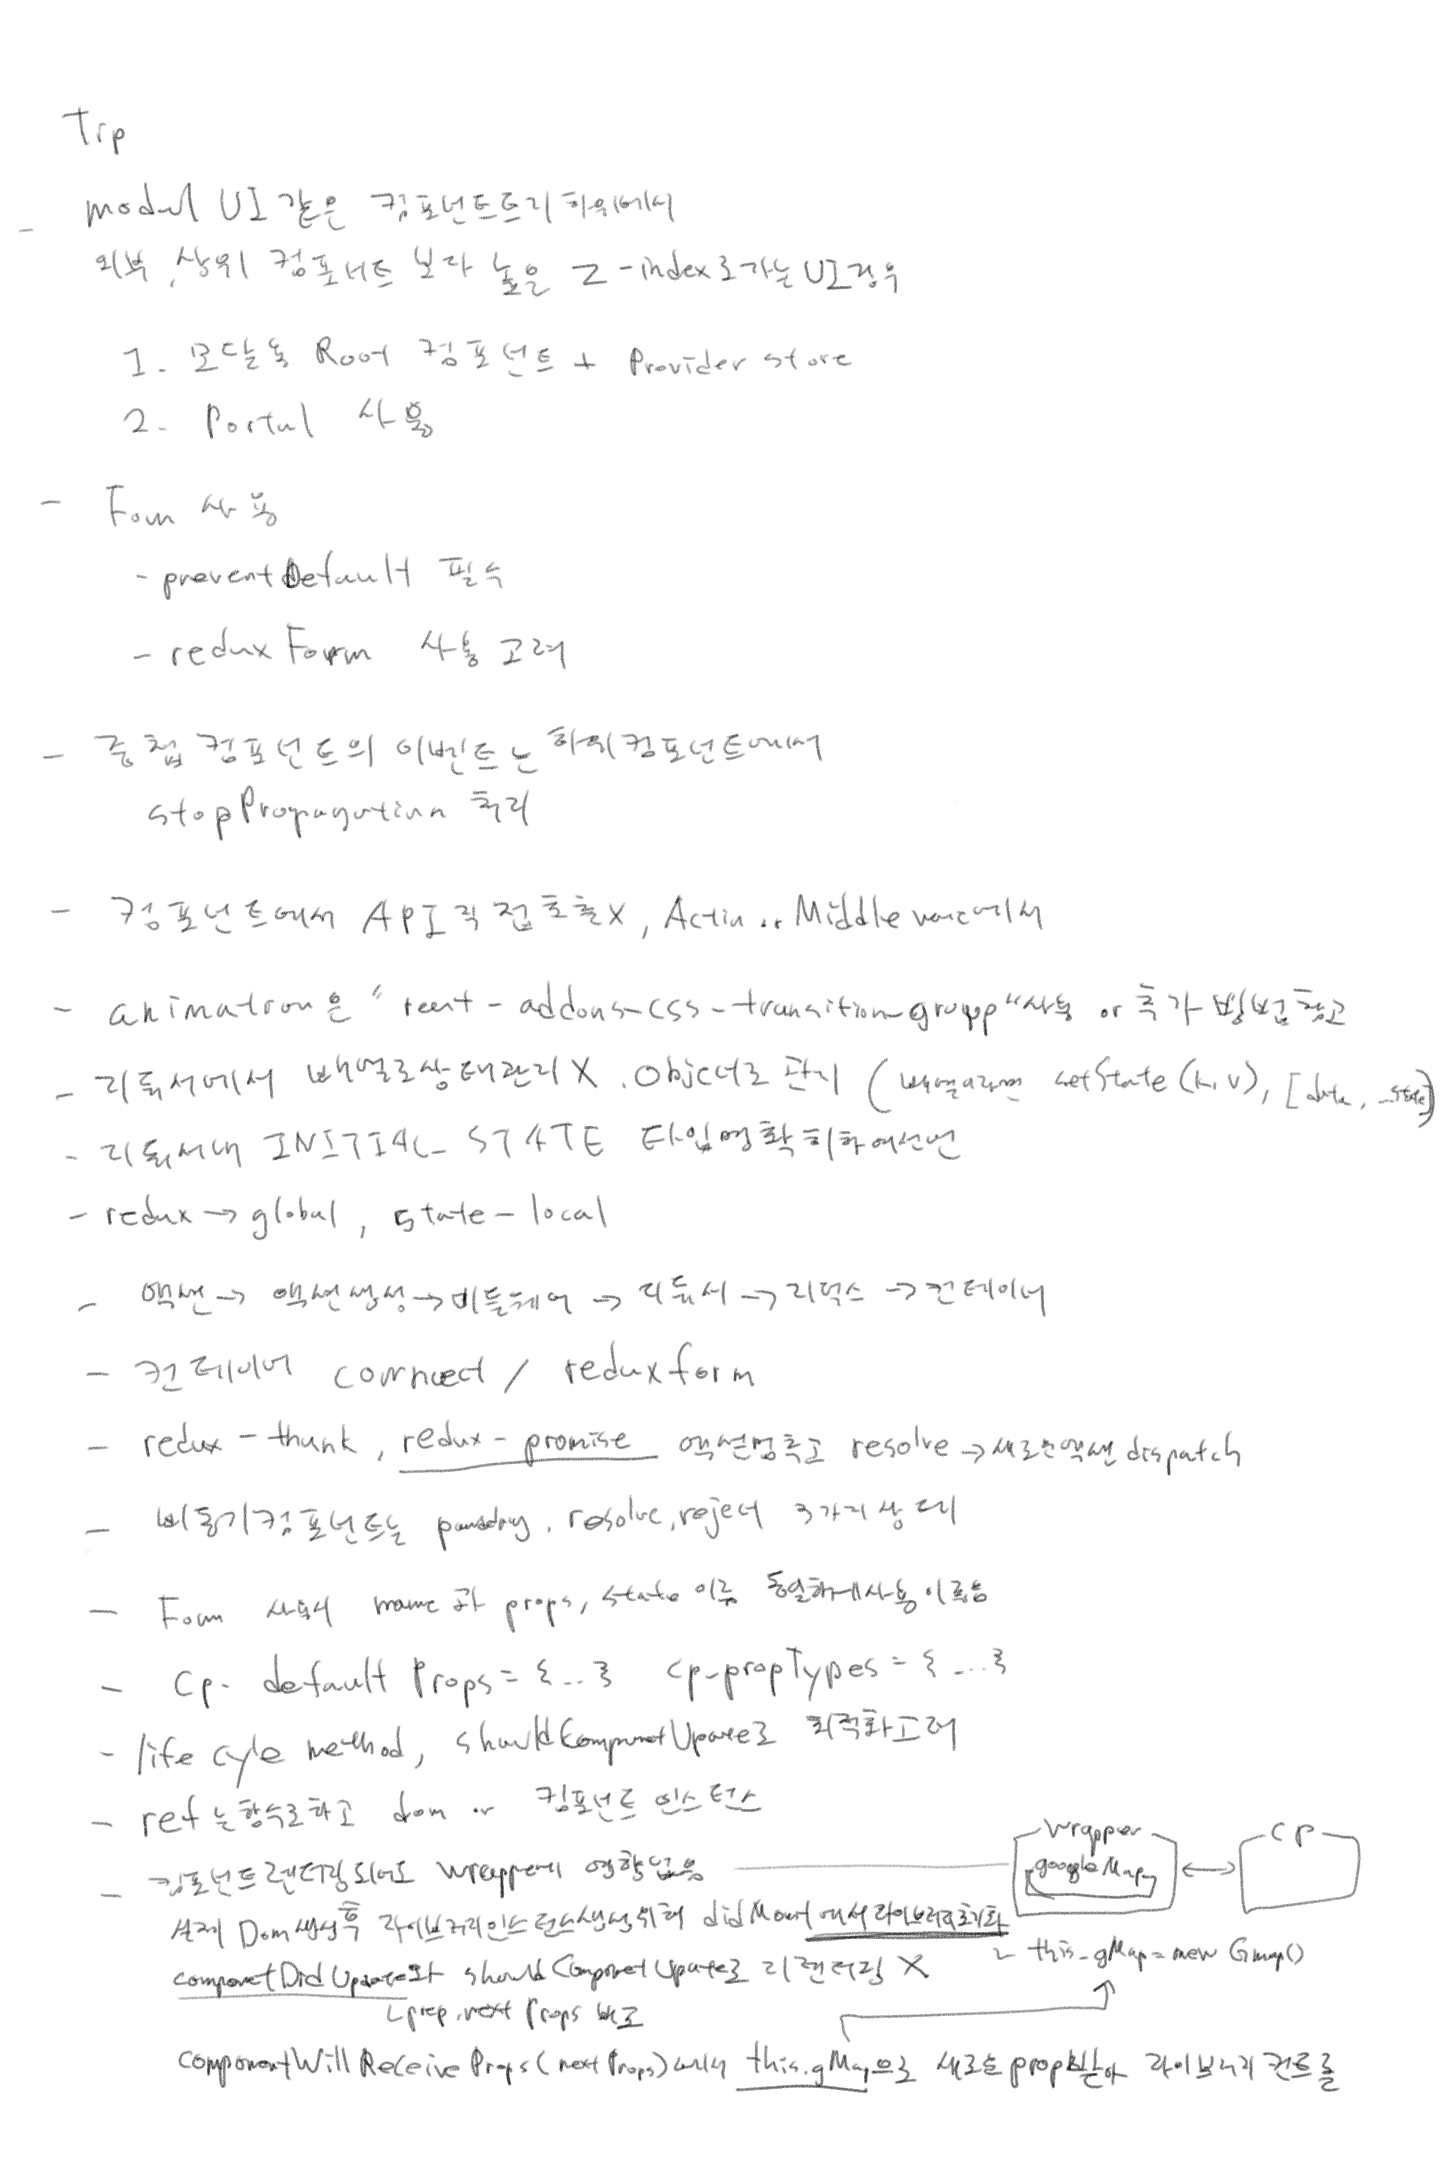 Tip
- modal UI 같은 컴포넌트트리 하위에서
외부, 상위 컴포넌트 보다 높은 z-index로가는 UI경우
1. 모달용 Root 컴포넌트 + Provider store
2. Portal 사용
- Form 사용
- preventDefault 필수
- redux Form 사용 고려
- 중첩 컴포넌트의 이벤트는 하위컴포넌트에서
stopPropagation 처리
- 컴포넌트에서 API 직접호출X, Action or Middleware에서
- animation은 "react-addons-css-transition-group" 사용 or 추가 방법참고
- 리듀서에서 배열로상태관리 X. Object로 관리 (배열이라면 setState(k,v), [data, ...state])
- 리듀서내 INITIAL_STATE 타입명확히하여선언
- redux → global, state - local
- 액션 → 액션생성 → 미들웨어 → 리듀서 → 리덕스 → 컨테이너
- 컨테이너 connect / reduxform
- redux-thunk, redux-promise 액션멈추고 resolve → 새로운액션 dispatch
- 비동기컴포넌트는 pending, resolve, reject 3가지상태
- Form 사용시 name과 props, state 이름 동일하게사용
- Cp. defaultProps = {...} cp.propTypes = {...}
- life cyle method, shouldComponentUpdate로 최적화고려
- ref는함수로하고 dom or 컴포넌트 인스턴스
- 컴포넌트렌더링되어도 wrapper에 영향없음
wrapper
googleMap
cp
실제 Dom생성후 라이브러리인스턴스생성위해 didMount에서라이브러리초기화
this.gMap = new Gmap()
componetDidUpdate와 shouldComponetUpate로 리렌더링 X
next Props 비교
componentWillReceiveProps(nextProps)에서 this.gMap으로 새로운props받아 라이브러리 컨트롤